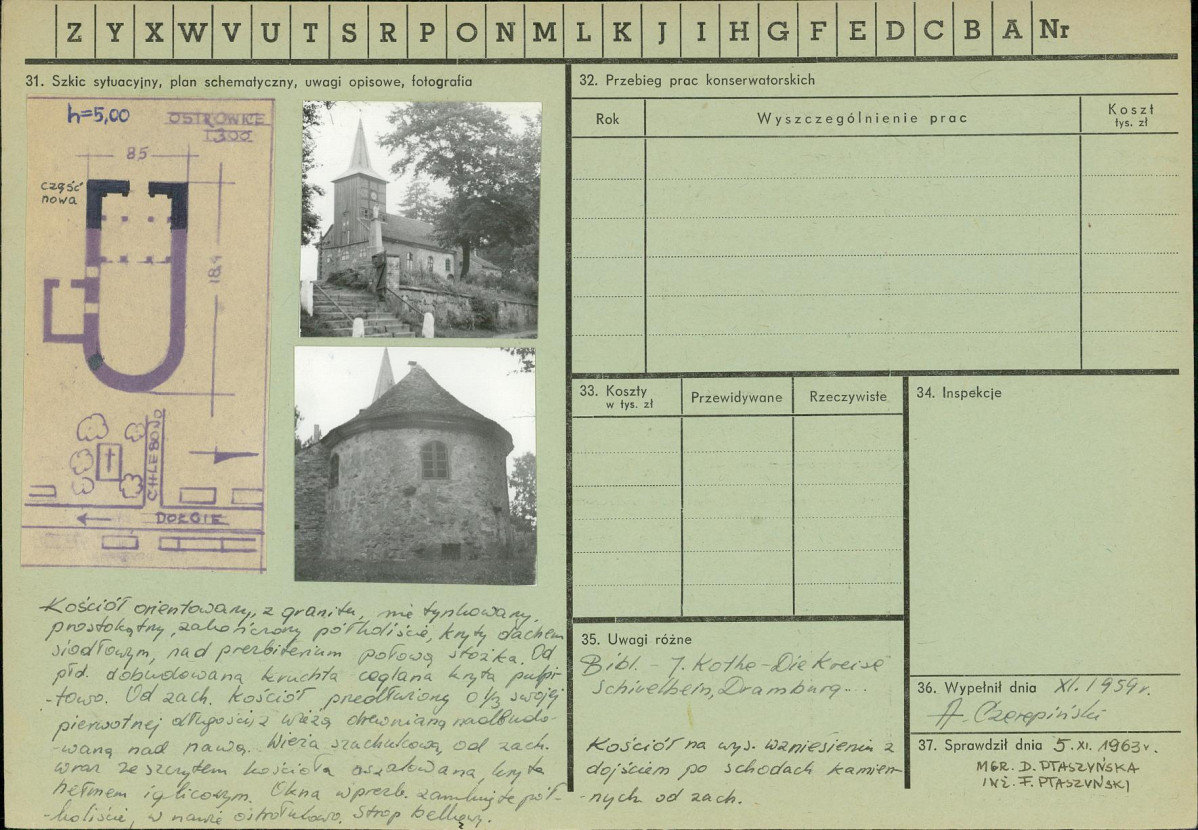 Z Y X W V U T S R P O N M L K J I H G F E D C B A Nr
31. Szkic sytuacyjny, plan schematyczny, uwagi opisowe, fotografia
h=5,00
OSTROWICE
1:300
85
część
nowa
18,4
CHLEBOWO
DOŁGIE
Kościół orientowany, z granitu, nie tynkowany,
prostokątny, zakończony półkoliście, kryty dachem
siodłowym, nad prezbiterium połową stożka. Od
płd. dobudowana kruchta ceglana kryta pulpi-
-towo. Od zach. kościół przedłużony o 1/3 swojej
pierwotnej długości z wieżą drewnianą nadbudo-
-waną nad nawą. Wieża szachulcowa, od zach.
wraz ze szczytem kościoła oszalowana, kryta
hełmem iglicowym. Okna w prezb. zamknięte pół-
-koliście, w nawie ostrołukowo. Strop belkowy.
32. Przebieg prac konserwatorskich
Rok
Wyszczególnienie prac
Koszt
tys. zł
33. Koszty
w tys. zł
Przewidywane
Rzeczywiste
34. Inspekcje
35. Uwagi różne
Bibl. - J. Kothe - Die Kreise
Schivelbein, Dramburg...
Kościół na wys. wzniesieniu z
dojściem po schodach kamien-
-nych od zach.
36. Wypełnił dnia XI. 1959 r.
A. Czerepiński
37. Sprawdził dnia 5. XI. 1963 r.
MGR. D. PTASZYŃSKA
INŻ. F. PTASZYŃSKI